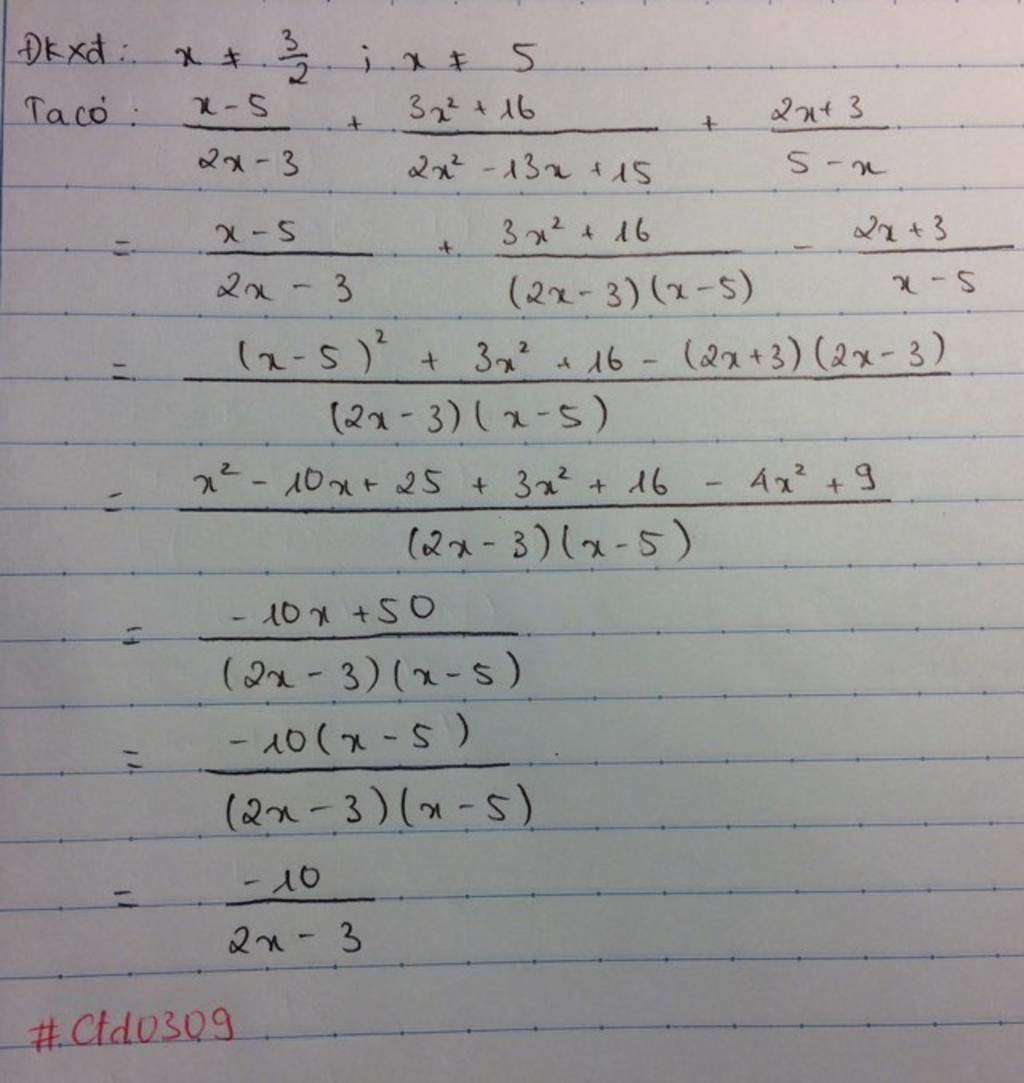 Đkxđ: x ≠ 3/2 ; x ≠ 5
Ta có: (x-5)/(2x-3) + (3x² + 16)/(2x² - 13x + 15) + (2x+3)/(5-x)
= (x-5)/(2x-3) + (3x² + 16)/((2x-3)(x-5)) - (2x+3)/(x-5)
= ((x-5)² + 3x² + 16 - (2x+3)(2x-3))/((2x-3)(x-5))
= (x² - 10x + 25 + 3x² + 16 - 4x² + 9)/((2x-3)(x-5))
= (-10x + 50)/((2x-3)(x-5))
= (-10(x-5))/((2x-3)(x-5))
= (-10)/(2x-3)
#Ctd0309